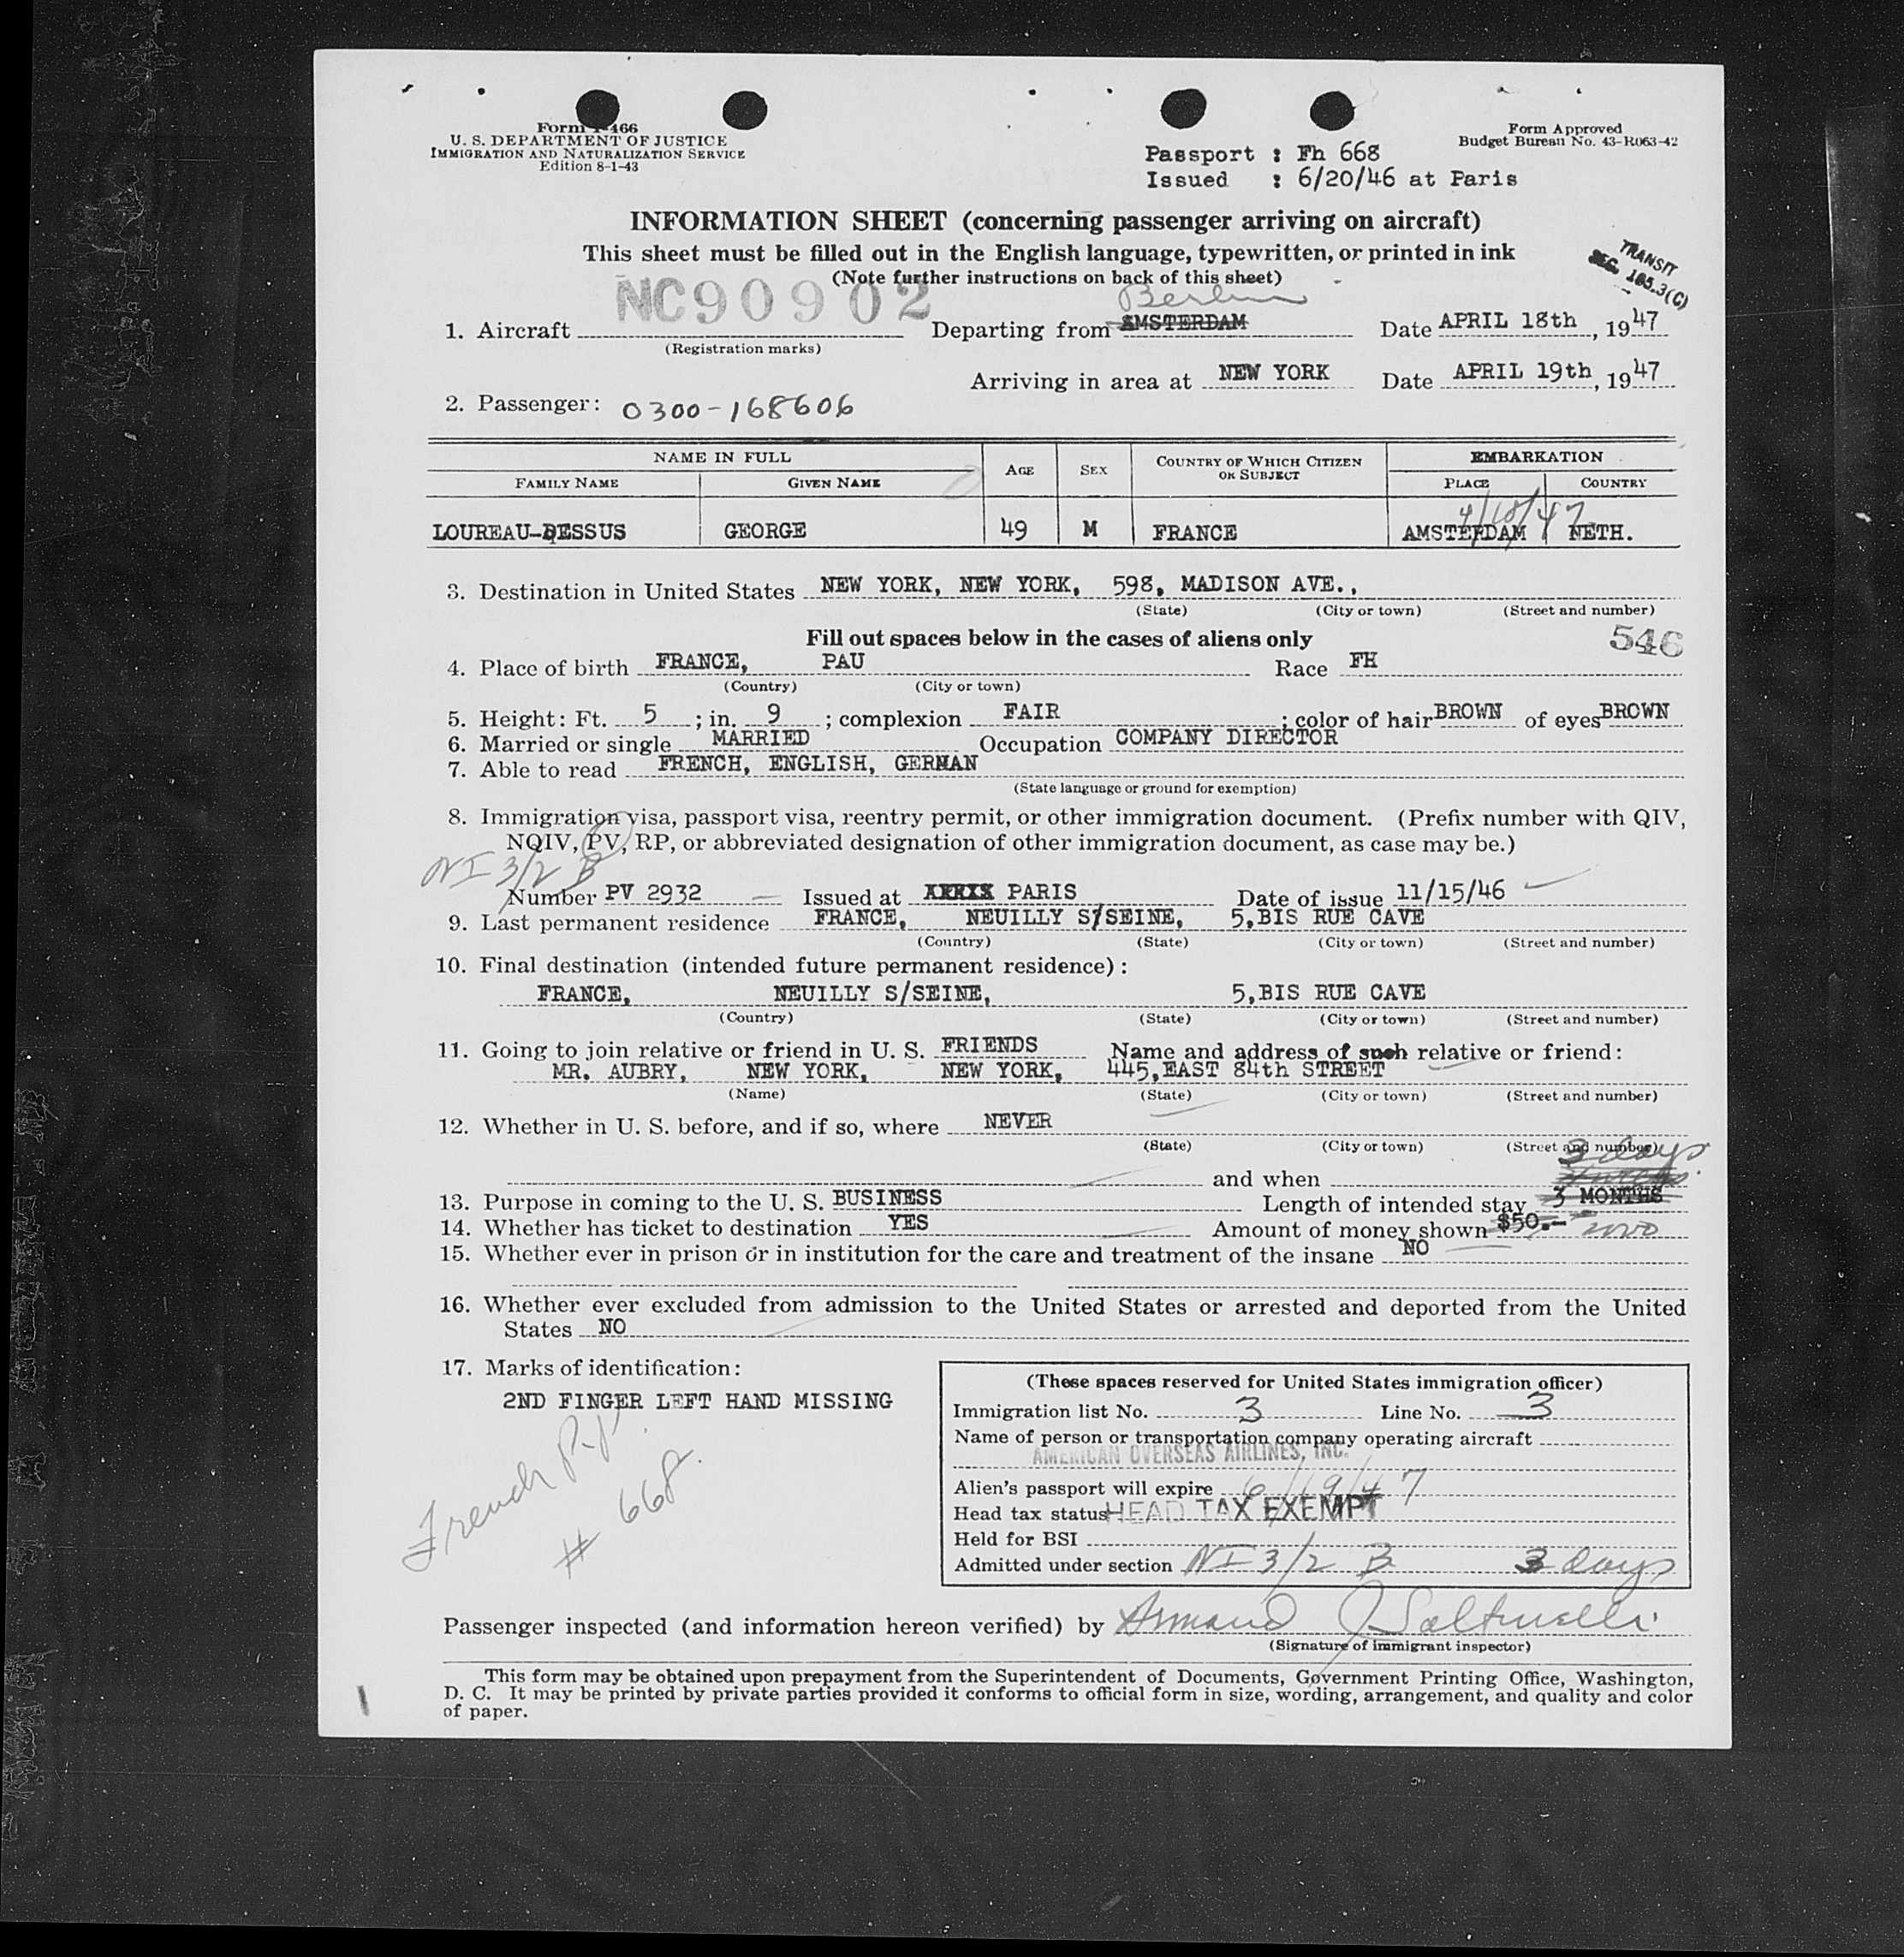 Form I-466
U. S. DEPARTMENT OF JUSTICE
IMMIGRATION AND NATURALIZATION SERVICE
Edition 8-1-43
Form Approved
Budget Bureau No. 43-R063-42
Passport : Fh 668
Issued : 6/20/46 at Paris
INFORMATION SHEET (concerning passenger arriving on aircraft)
This sheet must be filled out in the English language, typewritten, or printed in ink
(Note further instructions on back of this sheet)
TRANSIT
SEC. 165.3(C)
NC90902
Berlin
1. Aircraft Departing from AMSTERDAM Date APRIL 18th, 1947
(Registration marks)
Arriving in area at NEW YORK Date APRIL 19th, 1947
2. Passenger: 0300-168606
NAME IN FULL AGE SEX COUNTRY OF WHICH CITIZEN OR SUBJECT EMBARKATION
FAMILY NAME GIVEN NAME PLACE COUNTRY
4/18/47
LOUREAU-DESSUS GEORGE 49 M FRANCE AMSTERDAM NETH.
3. Destination in United States NEW YORK, NEW YORK, 598, MADISON AVE.,
(State) (City or town) (Street and number)
Fill out spaces below in the cases of aliens only
546
4. Place of birth FRANCE, PAU Race FH
(Country) (City or town)
5. Height: Ft. 5 ; in. 9 ; complexion FAIR ; color of hair BROWN of eyes BROWN
6. Married or single MARRIED Occupation COMPANY DIRECTOR
7. Able to read FRENCH, ENGLISH, GERMAN
(State language or ground for exemption)
8. Immigration visa, passport visa, reentry permit, or other immigration document. (Prefix number with QIV,
NQIV, PV, RP, or abbreviated designation of other immigration document, as case may be.)
NI 3/2 B
Number PV 2932 Issued at PARIS Date of issue 11/15/46
9. Last permanent residence FRANCE, NEUILLY S/SEINE, 5,BIS RUE CAVE
(Country) (State) (City or town) (Street and number)
10. Final destination (intended future permanent residence):
FRANCE, NEUILLY S/SEINE, 5,BIS RUE CAVE
(Country) (State) (City or town) (Street and number)
11. Going to join relative or friend in U. S. FRIENDS Name and address of such relative or friend:
MR. AUBRY, NEW YORK, NEW YORK, 445,EAST 84th STREET
(Name) (State) (City or town) (Street and number)
12. Whether in U. S. before, and if so, where NEVER
(State) (City or town) (Street and number)
3 days
and when
13. Purpose in coming to the U. S. BUSINESS Length of intended stay 3 MONTHS
14. Whether has ticket to destination YES Amount of money shown $50.- 2000
15. Whether ever in prison or in institution for the care and treatment of the insane NO
16. Whether ever excluded from admission to the United States or arrested and deported from the United
States NO
17. Marks of identification:
2ND FINGER LEFT HAND MISSING
French P.P.
# 668
(These spaces reserved for United States immigration officer)
Immigration list No. 3 Line No. 3
Name of person or transportation company operating aircraft
AMERICAN OVERSEAS AIRLINES, INC.
Alien's passport will expire 6/19/47
Head tax status HEAD TAX EXEMPT
Held for BSI
Admitted under section NI 3/2 B 3 days
Passenger inspected (and information hereon verified) by Armand J Saltinelli
(Signature of immigrant inspector)
This form may be obtained upon prepayment from the Superintendent of Documents, Government Printing Office, Washington,
D. C. It may be printed by private parties provided it conforms to official form in size, wording, arrangement, and quality and color
of paper.